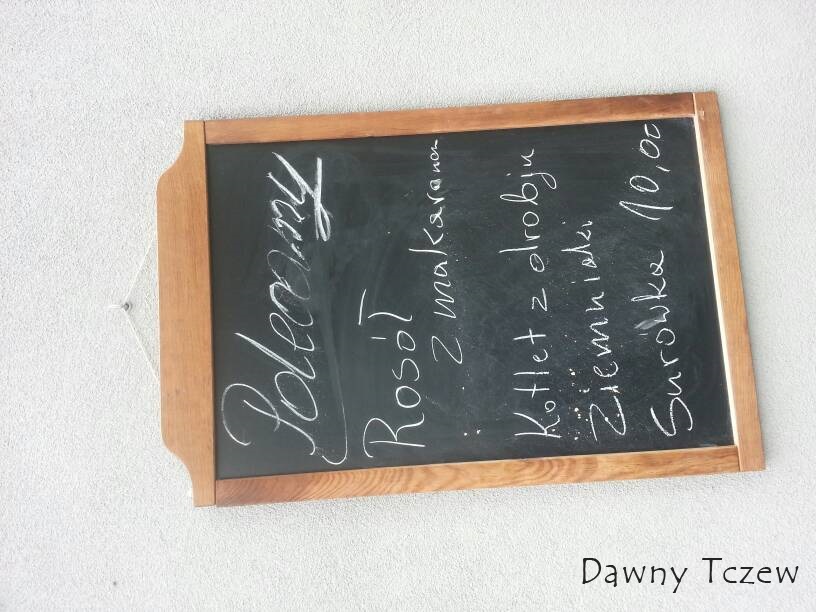 Polecamy
Rosół
z makaronem
Kotlet z drobiu
Ziemniaki
Surówka 10,00
Dawny Tczew